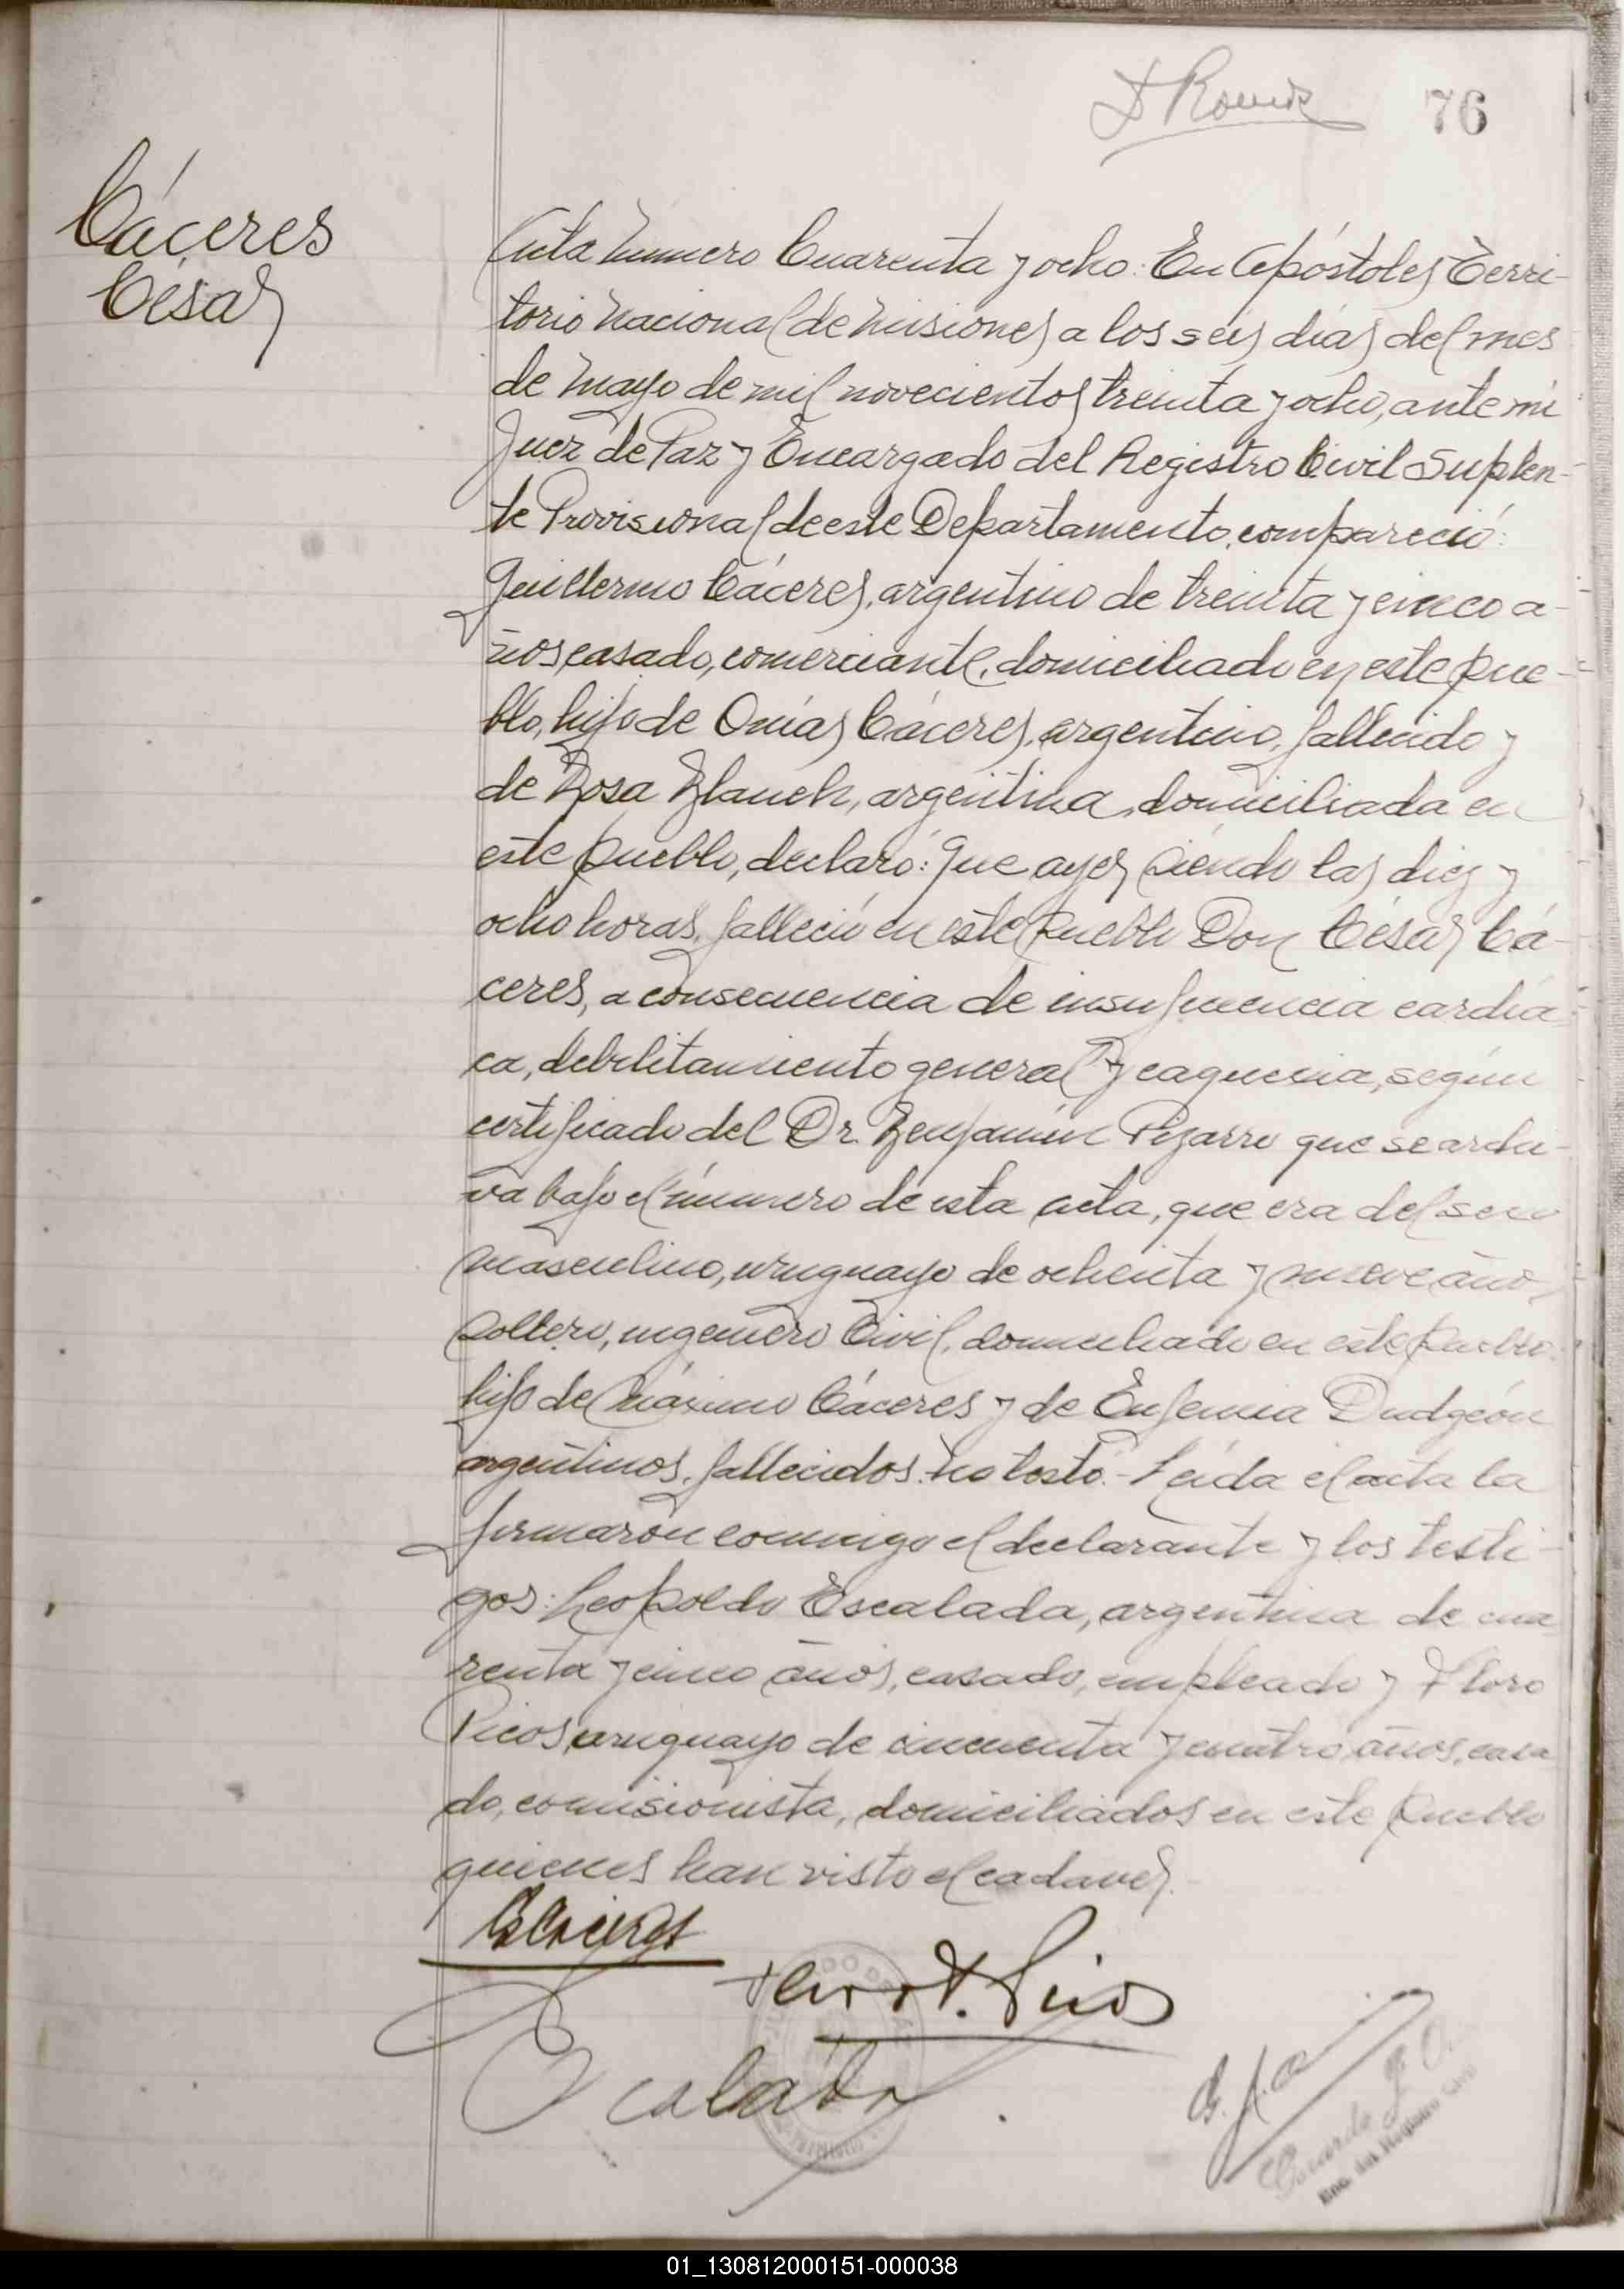 76
Cáceres
César
Acta número Cuarenta y ocho: En Apóstoles Terri-
torio Nacional de Misiones a los seis días del mes
de Mayo de mil novecientos treinta y ocho, ante mi
Juez de Paz y Encargado del Registro Civil Suplen-
te Provisional de este Departamento, compareció:
Guillermo Cáceres, argentino de treinta y cinco a-
ños, casado, comerciante, domiciliado en este pue-
blo, hijo de Onías Cáceres, argentino, fallecido y
de Rosa Blanch, argentina, domiciliada en
este pueblo, declaró: Que ayer siendo las diez y
ocho horas, falleció en este pueblo Don César Cá-
ceres, a consecuencia de insuficiencia cardía
ca, debilitamiento general y caquexia, según
certificado del Dr. Benjamín Pizarro que se archi-
va bajo el número de esta acta, que era del sexo
masculino, uruguayo de ochenta y nueve años,
soltero, ingeniero Civil, domiciliado en este pueblo
hijo de Máximo Cáceres y de Eufemia Dudgeón
argentinos, fallecidos. No testó.- Leída el acta la
firmaron conmigo el declarante y los testi-
gos: Leopoldo Escalada, argentino de cua
renta y cinco años, casado, empleado y Floro
Picos, uruguayo de cincuenta y cuatro años, casa
do, comisionista, domiciliados en este pueblo
quienes han visto el cadaver.
GCáceres
Escalada
01_130812000151-000038